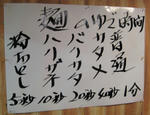 麺のゆで時間
普通 1分
カタメ 40秒
バリカタ 20秒
ハリガネ 10秒
粉おとし 5秒